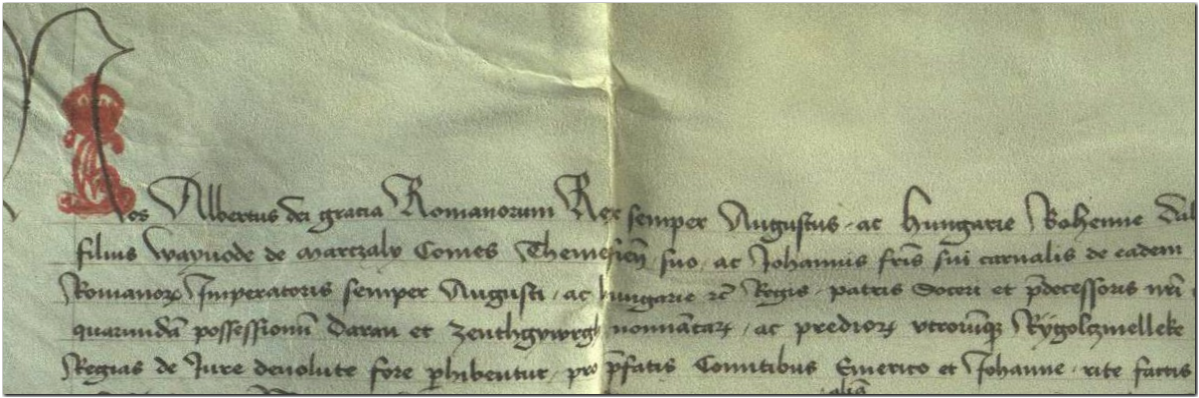 Nos Albertus dei gracia Romanorum Rex semper Augustus ac Hungarie Bohemie Dal
filius Wayuode de Marczaly Comes Themesień suo ac Johannis fr̄is sui carnalis de eadem
Romanoꝝ Imperatoris semper Augusti ac hungarie rc̄ Regis patris Soceri et p̄decessoris nr̄i
quarundā possessionū Daran et Zenthgywrgh nominataꝝ ac predioꝝ vtrorumqꝫ
Regias de Jure deuolute fore ꝑhibentur pro p̄fatis Comitibus Emerico et Johanne rite factis